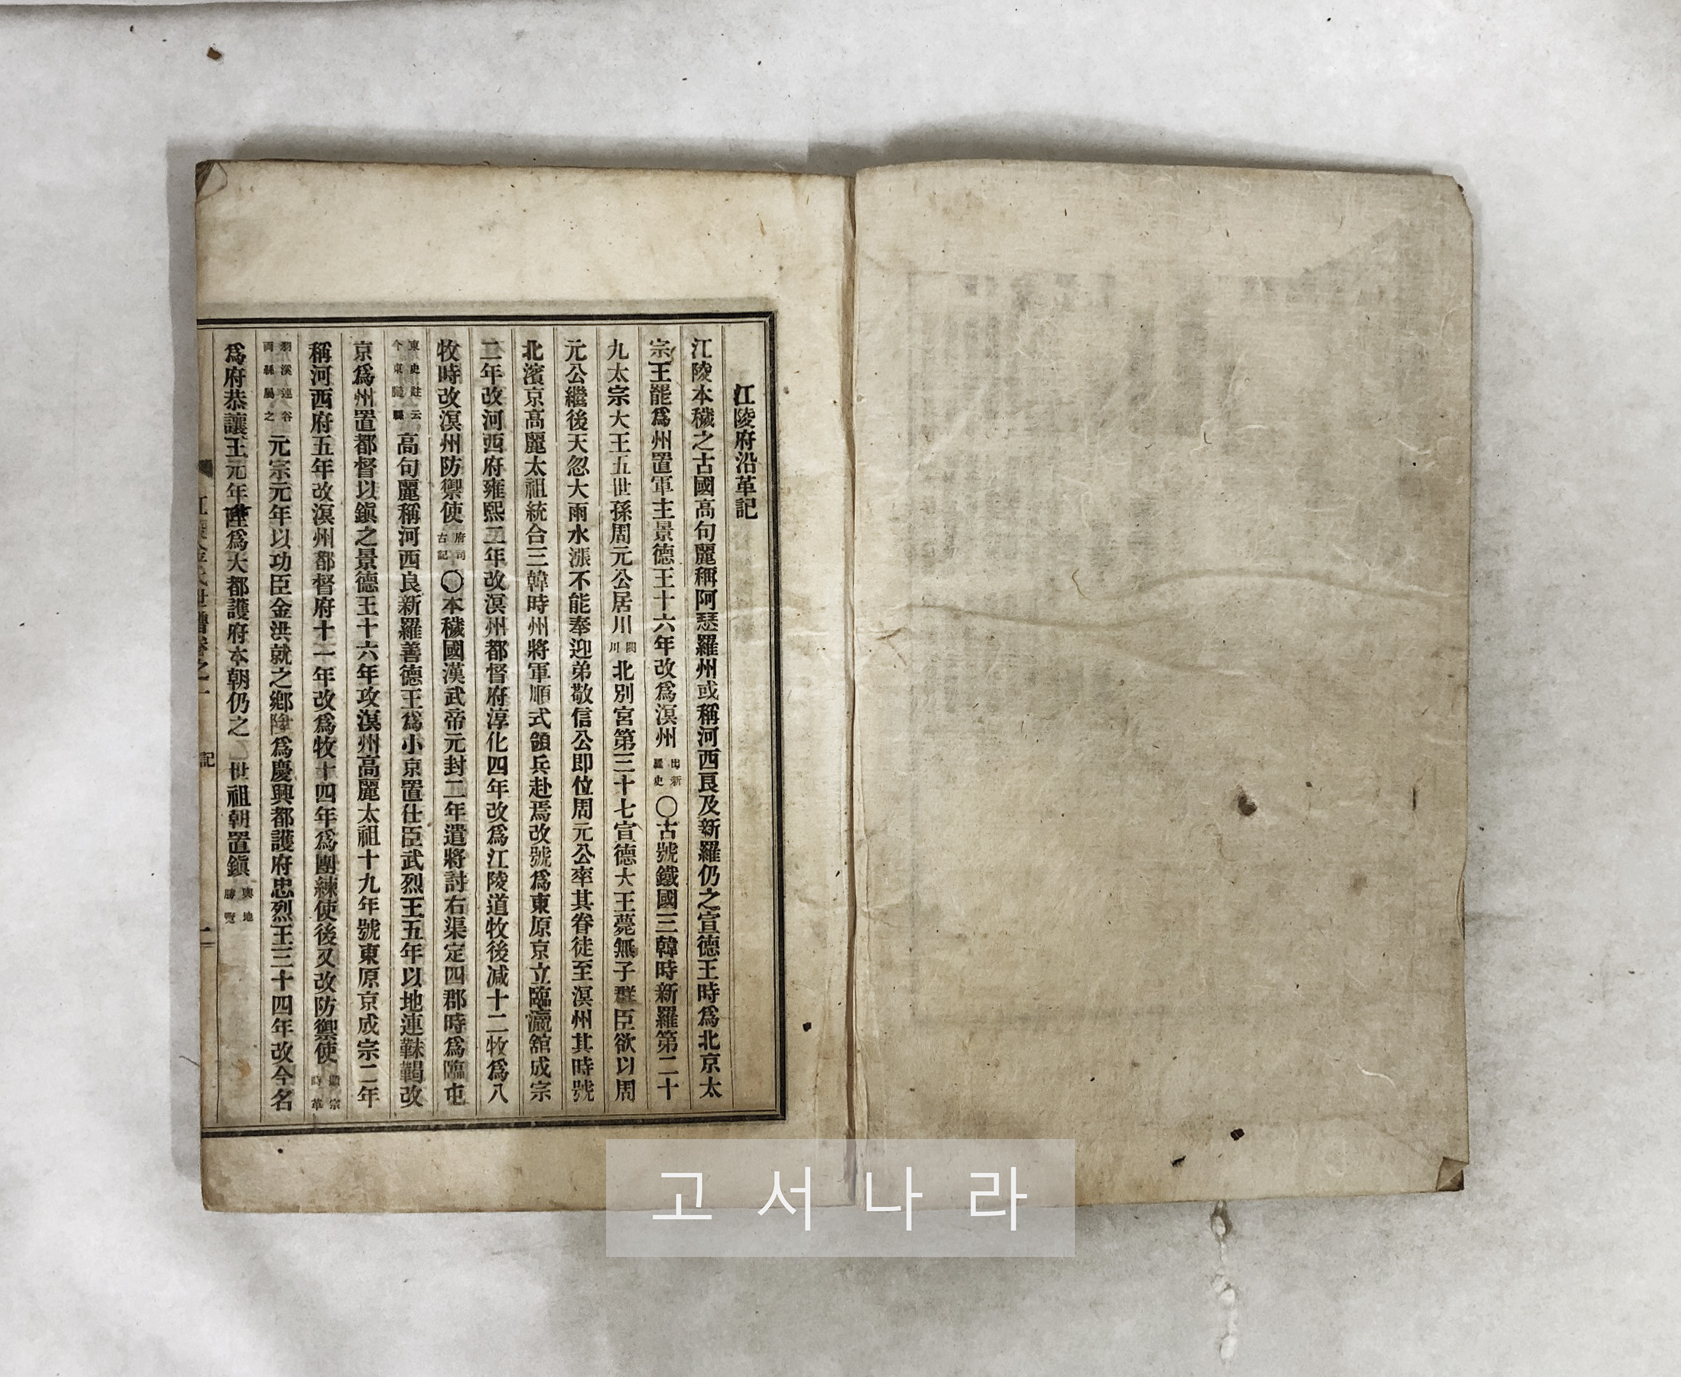 江陵府沿革記
江陵本穢之古國高句麗稱阿瑟羅州或稱河西良及新羅仍之宣德王時爲北京太
宗王罷爲州置軍主景德王十六年改爲溟州出新羅史〇古號鐵國三韓時新羅第二十
九太宗大王五世孫周元公居川閼川北別宮第三十七宣德大王薨無子群臣欲以周
元公繼後天忽大雨水漲不能奉迎弟敬信公即位周元公率其眷徒至溟州其時號
北濱京高麗太祖統合三韓時州將軍順式領兵赴焉改號爲東原京立臨瀛舘成宗
二年改河西府雍熙二年改溟州都督府淳化四年改爲江陵道牧後減十二牧爲八
牧時改溟州防禦使府司古記〇本穢國漢武帝元封二年遣將討右渠定四郡時爲臨屯
東史註云今東暆縣高句麗稱河西良新羅善德王爲小京置仕臣武烈王五年以地連靺鞨改
京爲州置都督以鎭之景德王十六年攻溟州高麗太祖十九年號東原京成宗二年
稱河西府五年改溟州都督府十一年改爲牧十四年爲團練使後又改防禦使
羽溪連谷兩縣屬之元宗元年以功臣金洪就之鄕陞爲慶興都護府忠烈王三十四年改今名
爲府恭讓王元年陞爲大都護府本朝仍之世祖朝置鎭輿地勝覽
記
一
고서나라